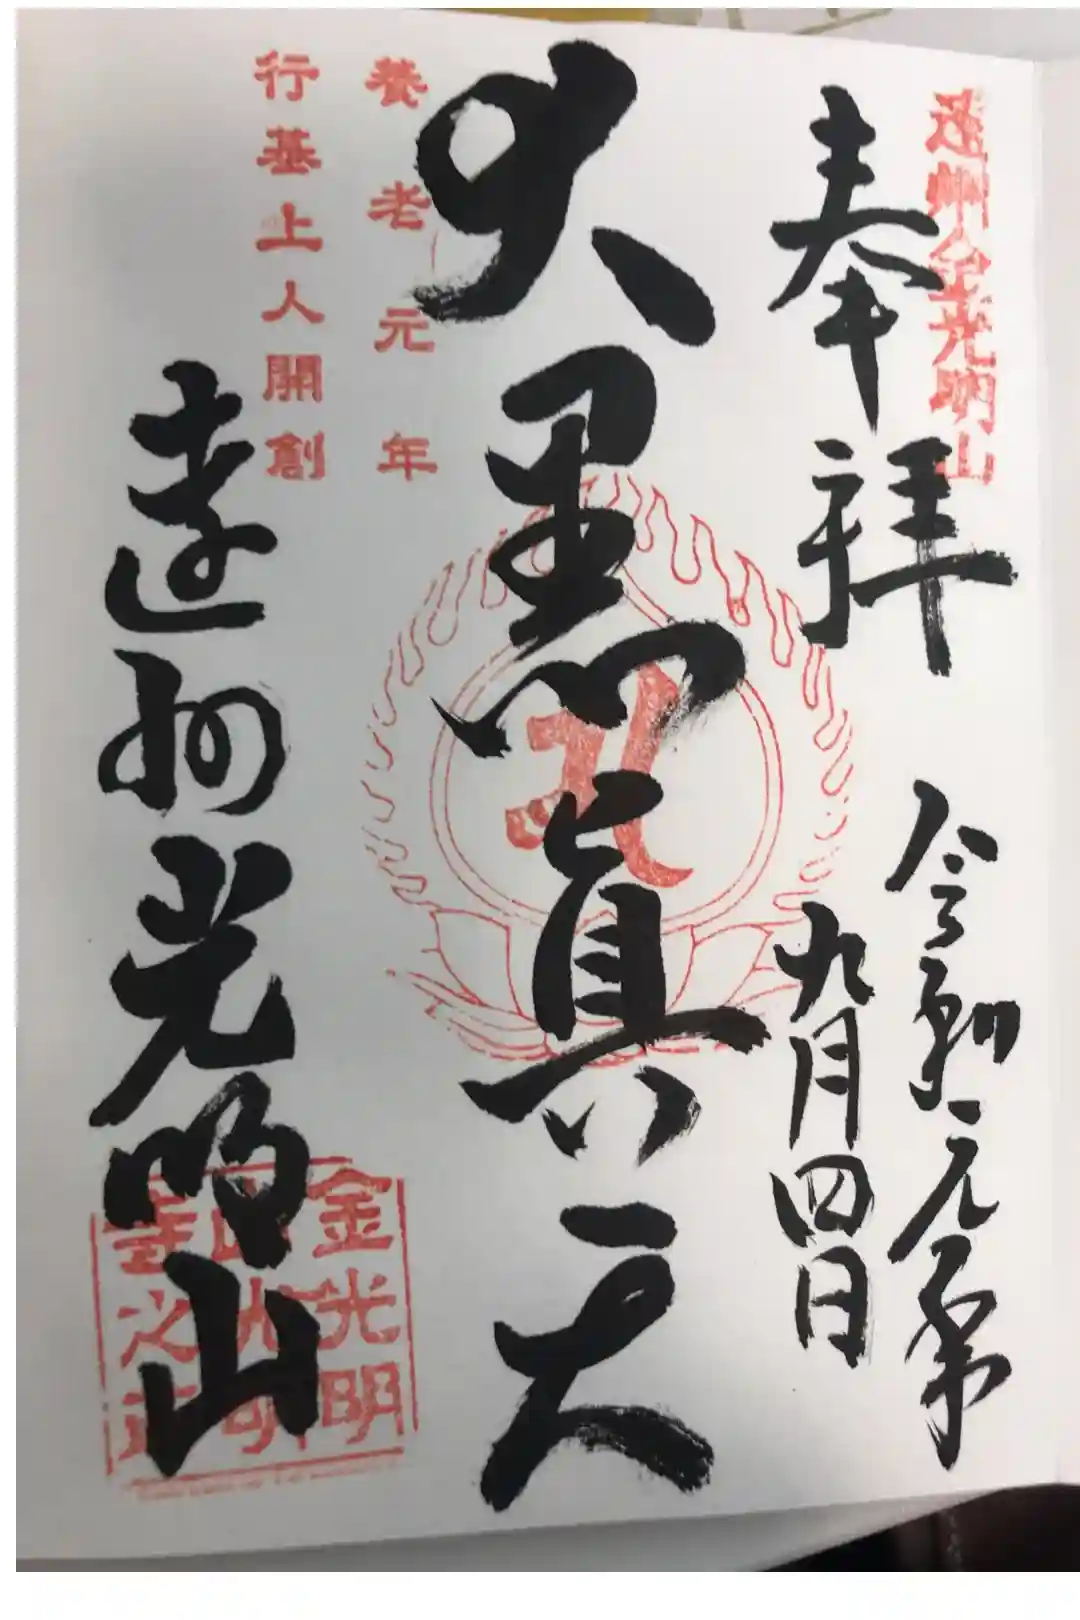 遠州金光明山
奉拝
令和元年
九月四日
大黒眞天
養老元年
行基上人開創
遠州光明山
金光明
山光明
寺之